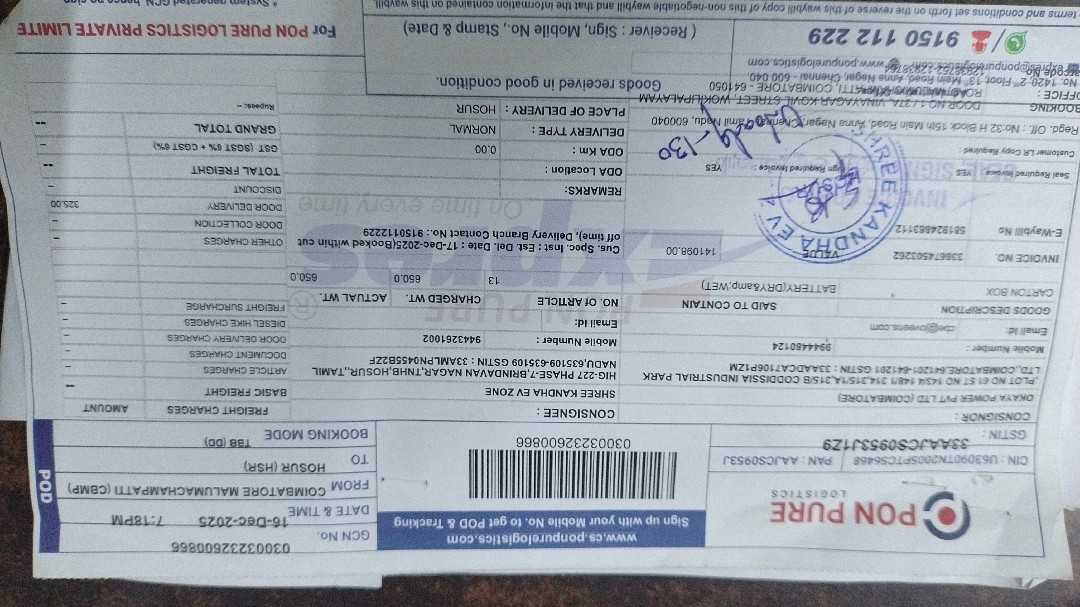 PON PURE
LOGISTICS
www.cs.ponpurelogistics.com
Sign up with your Mobile No. to get POD & Tracking
03003232600866
GCN No. 03003232600866
DATE & TIME 16-Dec-2025 7:18PM
FROM COIMBATORE MALUMACHAMPATTI (CBMP)
TO HOSUR (HSR)
BOOKING MODE TBB (DD)
POD
CIN : U63090TN2005PTC56468 PAN : AAJCS0953J
GSTIN : 33AAJCS0953J1Z9
CONSIGNOR :
OKAYA POWER PVT LTD (COIMBATORE)
,PLOT NO 61 ST NO 143/4 148/1 314,315/1A,315/B CODISSIA INDUSTRIAL PARK
LTD.,COIMBATORE,641201-641201 GSTIN : 33AADCA7106P1ZM
Mobile Number : 9944480124
Email Id : cbe@oveens.com
CONSIGNEE :
SHREE KANDHA EV ZONE
HIG-227 PHASE-7,BRINDAVAN NAGAR,TNHB,HOSUR,,TAMIL
NADU,635109-635109 GSTIN : 33AMLPN0455B2ZF
Mobile Number : 9443261002
Email Id:
GOODS DESCRIPTION SAID TO CONTAIN
CARTON BOX BATTERY(DRY&amp;WET)
NO. Of ARTICLE CHARGED WT. ACTUAL WT.
13 650.0 650.0
INVOICE NO. 336674503262 VALUE 141098.00
E-Waybill No 581924663112
Cus. Spec. Inst : Est. Del. Date : 17-Dec-2025(Booked within cut
off time), Delivery Branch Contact No.: 9150112229
PON PURE
Express
On time every time
REMARKS:
Seal Required Invoice : YES Sign Required Invoice : YES
ODA Location :
Customer LR Copy Required :
ODA Km : 0.00
DELIVERY TYPE : NORMAL
PLACE OF DELIVERY : HOSUR
SHREE KANDHA EV
FREIGHT CHARGES AMOUNT
BASIC FREIGHT
ARTICLE CHARGES --
DOCUMENT CHARGES --
DOOR DELIVERY CHARGES --
DIESEL HIKE CHARGES --
FREIGHT SURCHARGE --
OTHER CHARGES --
DOOR COLLECTION --
DOOR DELIVERY 325.00
DISCOUNT
TOTAL FREIGHT --
GST (SGST 6% + CGST 6%) --
GRAND TOTAL --
Rupees: --
Regd. Off. : No:32 H Block 15th Main Road, Anna Nagar,Chennai, Tamil Nadu, 600040
BOOKING DOOR NO 1 / 27A, VINAYAGAR KOVIL STREET, WOKILIPALAYAM
OFFICE : COIMBATORE - 641050
No. 1428, 2nd Floor, 13th Main Road, Anna Nagar, Chennai - 600 040
www.ponpurelogistics.com
9150 112 229
Goods received in good condition.
( Receiver : Sign, Mobile No., Stamp & Date)
For PON PURE LOGISTICS PRIVATE LIMITE
terms and conditions set forth on the reverse of this waybill copy of this non-negotiable waybill and that the information contained on this waybill